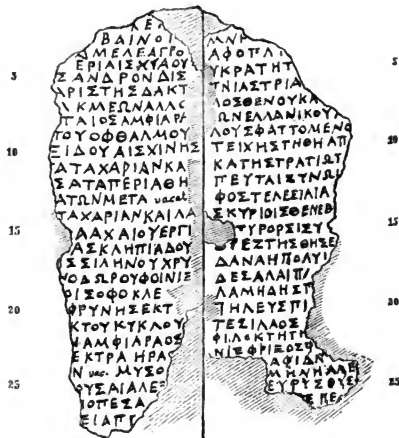 ΚΕ
ΒΑΙΝΟΙ
ΑΜΕΛΕΑΓΡΟ
ΕΡΙΑΙΣΧΥΛΟΥ
ΣΑΝΔΡΟΝΔΙΣ
ΑΡΙΣΤΗΣΔΑΚΤ
ΛΚΜΕΩΝΑΛΛΟ
ΤΑΙΟΣΑΜΦΙΑΡΑ
ΤΟΥΟΦΘΑΛΜΟΥ
ΞΙΔΟΥΑΙΣΧΙΝΗΣ
ΑΤΑΧΑΡΙΑΝΚΑ
ΣΑΤΑΠΕΡΙΑΘΗ
ΑΤΩΝΜΕΤΑ vacat
ΤΑΧΑΡΙΑΝΚΑΙΛΑ
ΑΑΧΑΙΟΥΕΡΓΙ
ΑΣΚΛΗΠΙΑΔΟΥ
ΣΣΙΛΗΝΟΥΧΡΥ
ΝΟΔΩΡΟΥΦΟΙΝΙΞ
ΟΙΣΟΦΟΚΛΕ
ΦΡΥΝΗΣΕΚΤ
ΚΤΟΥΚΥΚΛΟΥ
ΝΑΜΦΙΑΡΑΟΣ
ΕΚΤΡΑΗΡΑ
Ν vac. ΜΥΣΟ
ΟΥΣΑΙΑΛΕΞ
ΟΠΕΣΑ
ΕΙΑΠΓ
ΑΦΟΠΛΙ
ΥΚΡΑΤΗΤ
ΤΝΙΑΣΤΡΙΑ
ΛΟΣΘΕΝΟΥΚΑ
ΩΝΕΛΛΑΝΙΚΟΥ
ΛΟΥΣΦΑΤΤΟΜΕΝΟ
ΤΕΙΧΗΣΤΝΘΗΑΠ
ΚΑΤΗΣΤΡΑΤΙΩΤ
ΠΕΥΤΑΙΣΥΝΩΙ
ΦΟΣΤΕΛΕΣΙΛΙΑ
ΣΚΥΡΙΟΙΣΘΕΝΕΒ
ΤΥΡΟΡΣΙΣΥ
ΡΕΣΤΗΣΘΗΣΕ
ΔΑΝΑΗΠΟΛΥΙ
ΔΕΣΑΛΑΙΠΛ
ΛΑΜΗΔΗΣΠ
ΠΗΛΕΥΣΠΛ
ΤΕΣΙΛΑΟΣ
ΦΙΛΟΚΤΗΤΗ
ΝΙΞΦΡΙΞΟΣΦ
ΛΑΦΙΔΝ
ΜΗΝΗΑΛΕ
ΕΥΡΥΣΘΥΣ
5
10
15
20
25
5
10
15
20
25